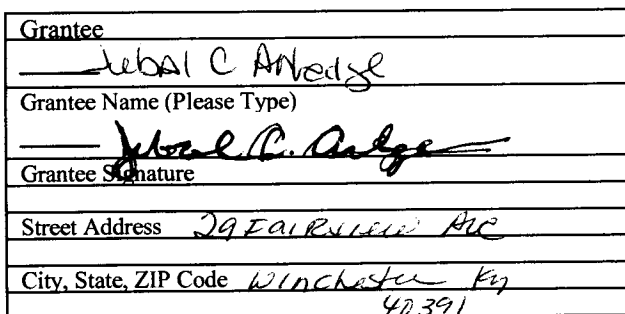 Grantee
Jubal C Arledge
Grantee Name (Please Type)
Jubal C. Arledge
Grantee Signature
Street Address 29 Fairview Ave
City, State, ZIP Code Winchester Ky
40391